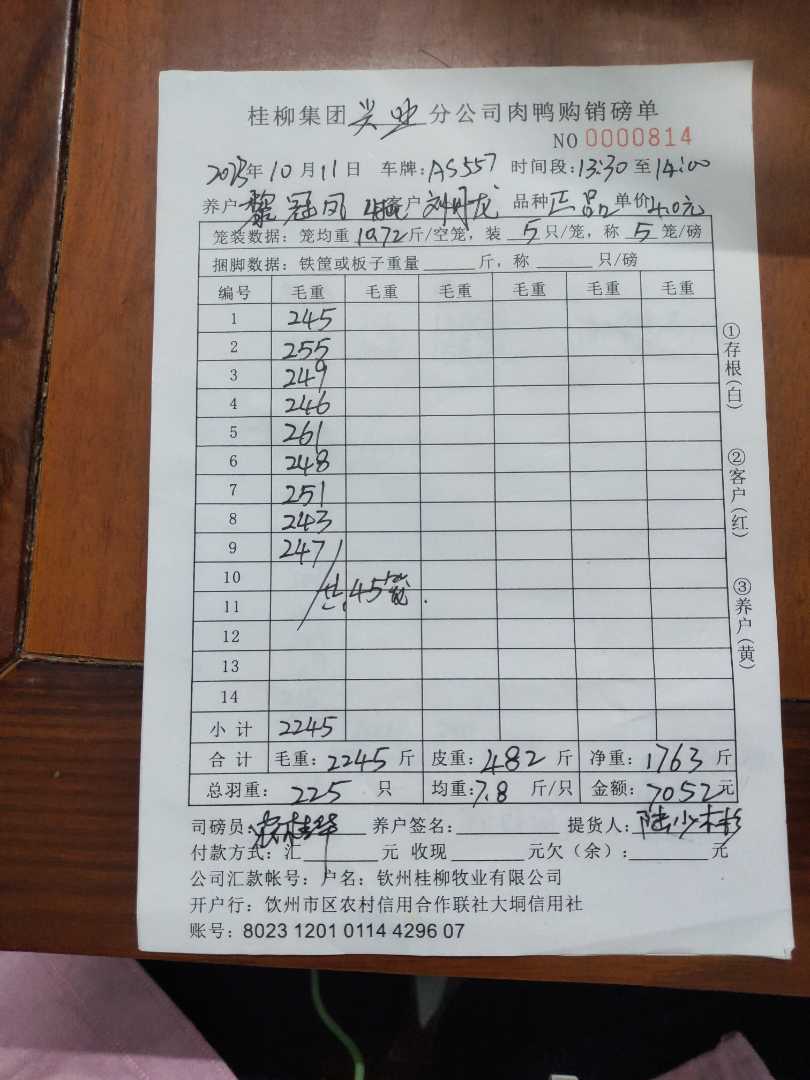 桂柳集团兴业分公司肉鸭购销磅单
NO 0000814
2023年10月11日 车牌:AS557 时间段:13:30至14:00
养户 黎冠凤 客户 刘丹龙 品种正品 单价4.0元
笼装数据：笼均重10.72斤/空笼，装 5 只/笼，称 5 笼/磅
捆脚数据：铁筐或板子重量 斤，称 只/磅
编号 毛重 毛重 毛重 毛重 毛重 毛重
1 245
2 255
3 249
4 246
5 261
6 248
7 251
8 243
9 247
10
共45笼.
11
12
13
14
小计 2245
合计 毛重：2245斤 皮重：482斤 净重：1763斤
总羽重：225只 均重:7.8斤/只 金额：7052元
司磅员: 养户签名： 提货人：陆少彬
付款方式：汇 元 收现 元欠（余）： 元
公司汇款帐号：户名：钦州桂柳牧业有限公司
开户行：饮州市区农村信用合作联社大垌信用社
账号：8023 1201 0114 4296 07
①存根(白)
②客户(红)
③养户(黄)